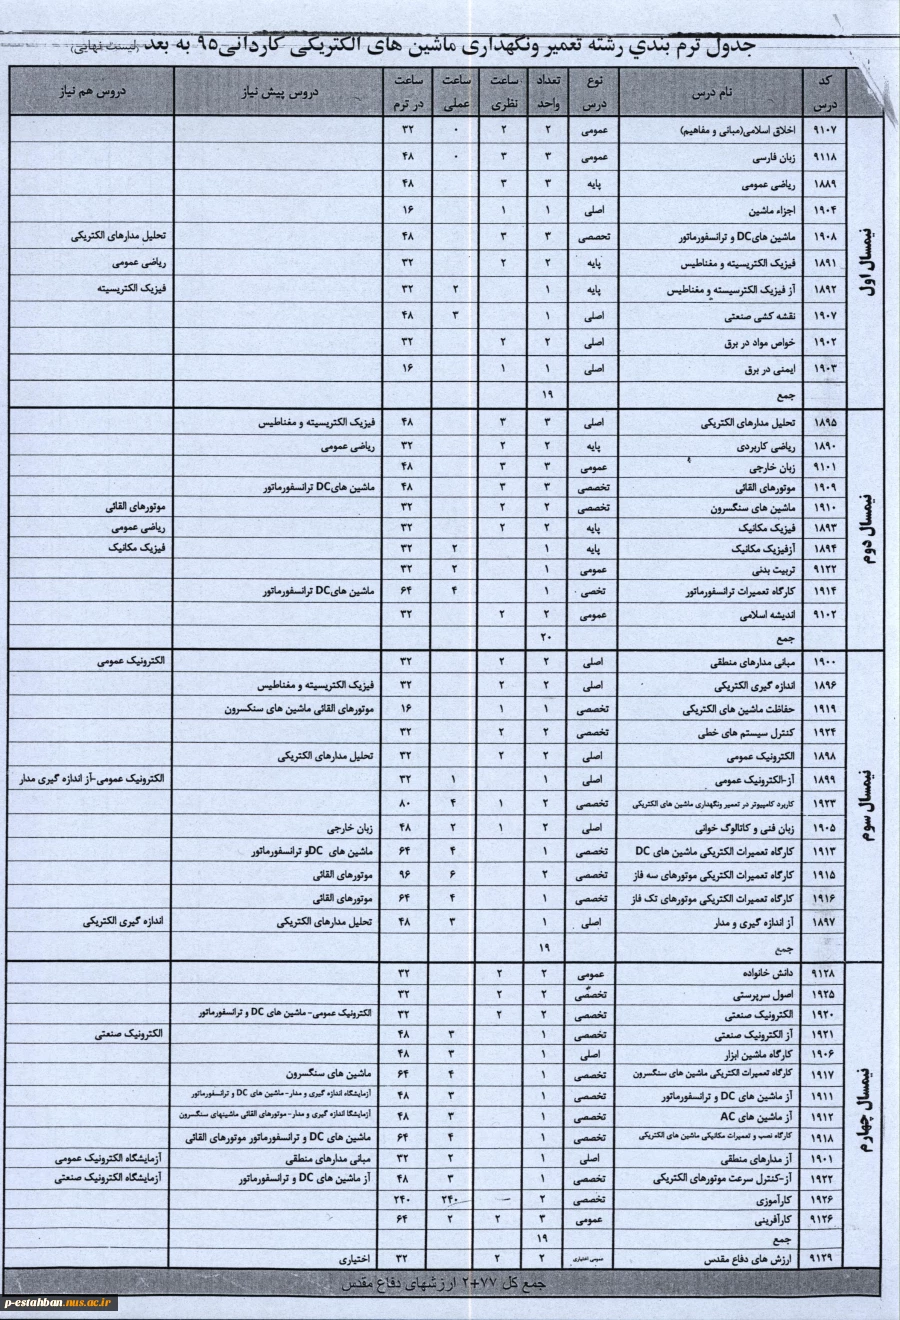 جدول ترم بندي رشته تعمیر ونگهداری ماشین های الکتریکی کاردانی۹۵ به بعد (لیست نهایی)
کد درس نام درس نوع درس تعداد واحد ساعت نظری ساعت عملی ساعت در ترم دروس پیش نیاز دروس هم نیاز
نیمسال اول
۹۱۰۷ اخلاق اسلامی(مبانی و مفاهیم) عمومی ۲ ۲ ۰ ۳۲
۹۱۱۸ زبان فارسی عمومی ۳ ۳ ۰ ۴۸
۱۸۸۹ ریاضی عمومی پایه ۳ ۳ ۴۸
۱۹۰۴ اجزاء ماشین اصلی ۱ ۱ ۱۶
۱۹۰۸ ماشین هایDC و ترانسفورماتور تحصصی ۳ ۳ ۴۸ تحلیل مدارهای الکتریکی
۱۸۹۱ فیزیک الکتریسیته و مغناطیس پایه ۲ ۲ ۳۲ ریاضی عمومی
۱۸۹۲ آز فیزیک الکترسیسته و مغناطیس پایه ۱ ۲ ۳۲ فیزیک الکتریسیته
۱۹۰۷ نقشه کشی صنعتی اصلی ۱ ۳ ۴۸
۱۹۰۲ خواص مواد در برق اصلی ۲ ۲ ۳۲
۱۹۰۳ ایمنی در برق اصلی ۱ ۱ ۱۶
جمع ۱۹
نیمسال دوم
۱۸۹۵ تحلیل مدارهای الکتریکی اصلی ۳ ۳ ۴۸ فیزیک الکتریسیته و مغناطیس
۱۸۹۰ ریاضی کاربردی پایه ۲ ۲ ۳۲ ریاضی عمومی
۹۱۰۱ زبان خارجی عمومی ۳ ۳ ۴۸
۱۹۰۹ موتورهای القائی تخصصی ۳ ۳ ۴۸ ماشین هایDC ترانسفورماتور
۱۹۱۰ ماشین های سنگسرون تخصصی ۲ ۲ ۳۲ موتورهای القائی
۱۸۹۳ فیزیک مکانیک پایه ۲ ۲ ۳۲ ریاضی عمومی
۱۸۹۴ آزفیزیک مکانیک پایه ۱ ۲ ۳۲ فیزیک مکانیک
۹۱۲۲ تربیت بدنی عمومی ۱ ۲ ۳۲
۱۹۱۴ کارگاه تعمیرات ترانسفورماتور تخصی ۱ ۴ ۶۴ ماشین هایDC ترانسفورماتور
۹۱۰۲ اندیشه اسلامی عمومی ۲ ۲ ۳۲
جمع ۲۰
نیمسال سوم
۱۹۰۰ مبانی مدارهای منطقی اصلی ۲ ۲ ۳۲ الکترونیک عمومی
۱۸۹۶ اندازه گیری الکتریکی اصلی ۲ ۲ ۳۲ فیزیک الکتریسیته و مغناطیس
۱۹۱۹ حفاظت ماشین های الکتریکی تخصصی ۱ ۱ ۱۶ موتورهای القائی ماشین های سنکسرون
۱۹۲۴ کنترل سیستم های خطی تخصصی ۲ ۲ ۳۲
۱۸۹۸ الکترونیک عمومی اصلی ۲ ۲ ۳۲ تحلیل مدارهای الکتریکی
۱۸۹۹ آز-الکترونیک عمومی اصلی ۱ ۱ ۳۲ الکترونیک عمومی-آز اندازه گیری مدار
۱۹۲۳ کاربرد کامپیوتر در تعمیر ونگهداری ماشین های الکتریکی تخصصی ۲ ۱ ۴ ۸۰
۱۹۰۵ زبان فنی و کاتالوگ خوانی اصلی ۲ ۱ ۲ ۴۸ زبان خارجی
۱۹۱۳ کارگاه تعمیرات الکتریکی ماشین های DC تخصصی ۱ ۴ ۶۴ ماشین های DCو ترانسفورماتور
۱۹۱۵ کارگاه تعمیرات الکتریکی موتورهای سه فاز تخصصی ۲ ۶ ۹۶ موتورهای القائی
۱۹۱۶ کارگاه تعمیرات الکتریکی موتورهای تک فاز تخصصی ۱ ۴ ۶۴ موتورهای القائی
۱۸۹۷ آز اندازه گیری و مدار اصلی ۱ ۳ ۴۸ تحلیل مدارهای الکتریکی اندازه گیری الکتریکی
جمع ۱۹
نیمسال چهارم
۹۱۲۸ دانش خانواده عمومی ۲ ۲ ۳۲
۱۹۲۵ اصول سرپرستی تخصصی ۲ ۲ ۳۲
۱۹۲۰ الکترونیک صنعتی تخصصی ۲ ۲ ۳۲ الکترونیک عمومی- ماشین های DC و ترانسفورماتور
۱۹۲۱ آز الکترونیک صنعتی تخصصی ۱ ۳ ۴۸ الکترونیک صنعتی
۱۹۰۶ کارگاه ماشین ابزار اصلی ۱ ۳ ۴۸
۱۹۱۷ کارگاه تعمیرات الکتریکی ماشین های سنگسرون تخصصی ۱ ۴ ۶۴ ماشین های سنگسرون
۱۹۱۱ آز ماشین های DC و ترانسفورماتور تخصصی ۱ ۳ ۴۸ آزمایشگاه اندازه گیری و مدار-ماشین های DC و ترانسفورماتور
۱۹۱۲ آز ماشین های AC تخصصی ۱ ۳ ۴۸ آزمایشگا اندازه گیری و مدار-موتورهای القائی ماشینهای سنگسرون
۱۹۱۸ کارگاه نصب و تعمیرات مکانیکی ماشین های الکتریکی تخصصی ۱ ۴ ۶۴ ماشین های DC و ترانسفورماتور موتورهای القائی
۱۹۰۱ آز مدارهای منطقی اصلی ۱ ۲ ۳۲ مبانی مدارهای منطقی آزمایشگاه الکترونیک عمومی
۱۹۲۲ آز-کنترل سرعت موتورهای الکتریکی تخصصی ۱ ۳ ۴۸ آز ماشین های DC و ترانسفورماتور آزمایشگاه الکترونیک صنعتی
۱۹۲۶ کارآموزی تخصصی ۲ — ۲۴۰ ۲۴۰
۹۱۲۶ کارآفرینی عمومی ۳ ۲ ۲ ۶۴
جمع ۱۹
۹۱۲۹ ارزش های دفاع مقدس عمومی اختیاری ۲ ۲ ۳۲ اختیاری
جمع کل ۷۷+۲ ارزشهای دفاع مقدس
p-estahban.nus.ac.ir